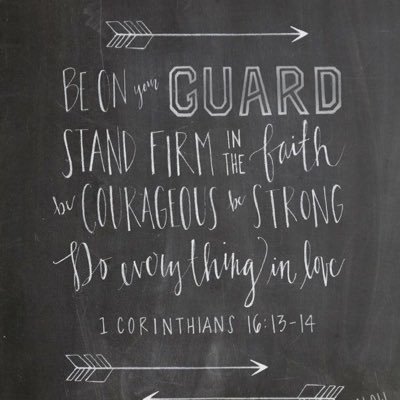 BE ON your GUARD
STAND FIRM IN THE faith
be COURAGEOUS be STRONG
Do everything in love
1 CORINTHIANS 16:13-14